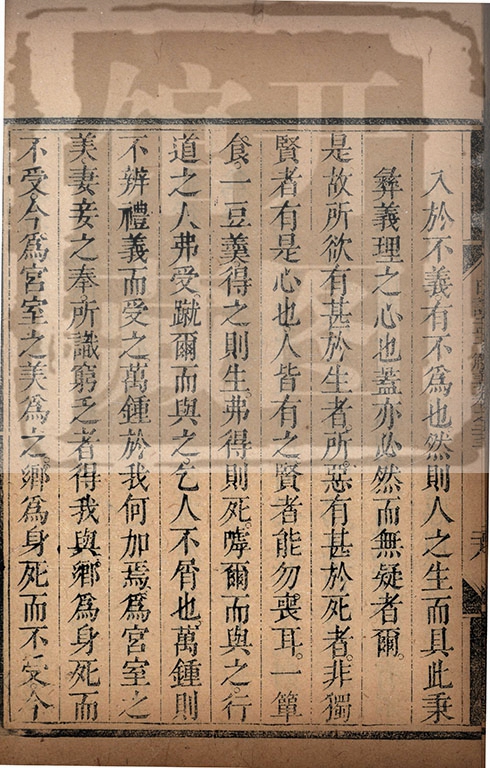 入於不義有不為也然則人之生而具此秉
彝義理之心也蓋亦必然而無疑者爾
是故所欲有甚於生者所惡有甚於死者非獨
賢者有是心也人皆有之賢者能勿喪耳一簞
食一豆羹得之則生弗得則死嘑爾而與之行
道之人弗受蹴爾而與之乞人不屑也萬鍾則
不辨禮義而受之萬鍾於我何加焉為宮室之
美妻妾之奉所識窮乏者得我與鄉為身死而
不受今為宮室之美為之鄉為身死而不受今